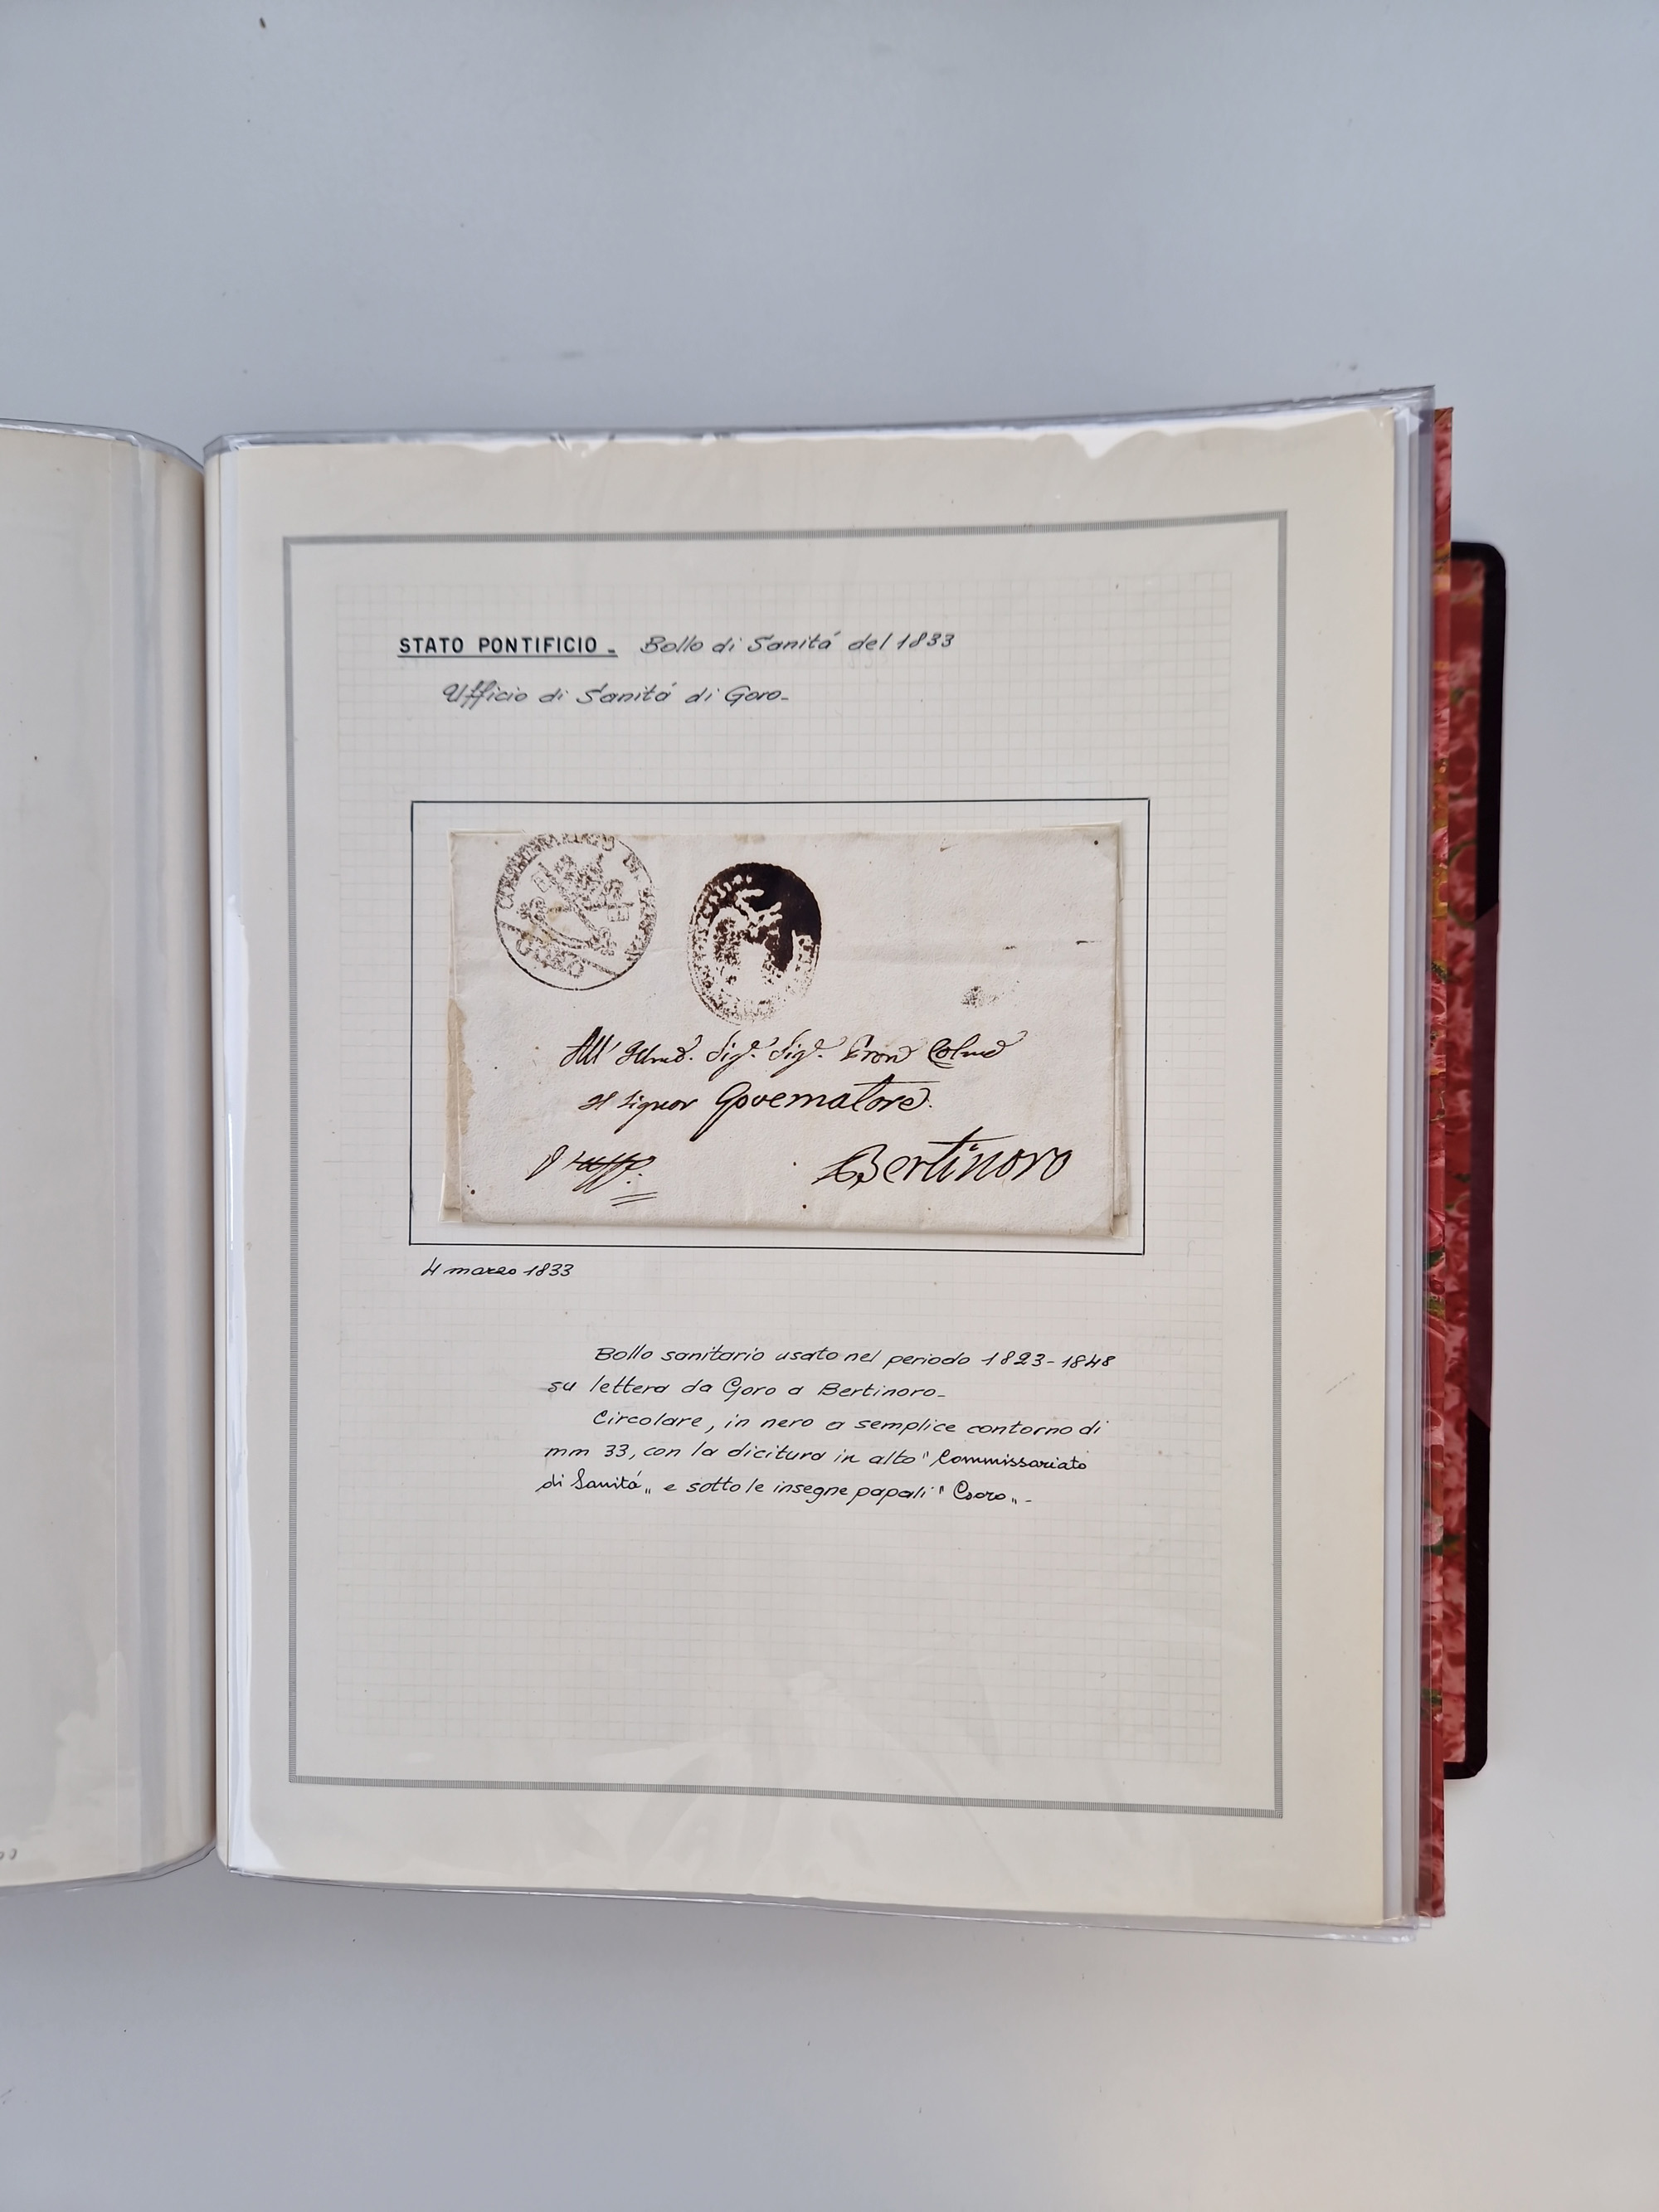 STATO PONTIFICIO - Bollo di Sanitá del 1833
Ufficio di Sanitá di Goro-
COMMISSARIATO DI SANITA
GORO
All' Illmo. Sigr. Sigr. Pron Colmo
Il Signor Governatore
Bertinoro
4 marzo 1833
Bollo sanitario usato nel periodo 1823-1848
su lettera da Goro a Bertinoro-
Circolare, in nero a semplice contorno di
mm 33, con la dicitura in alto "Commissariato
di Sanitá" e sotto le insegne papali "Goro"-